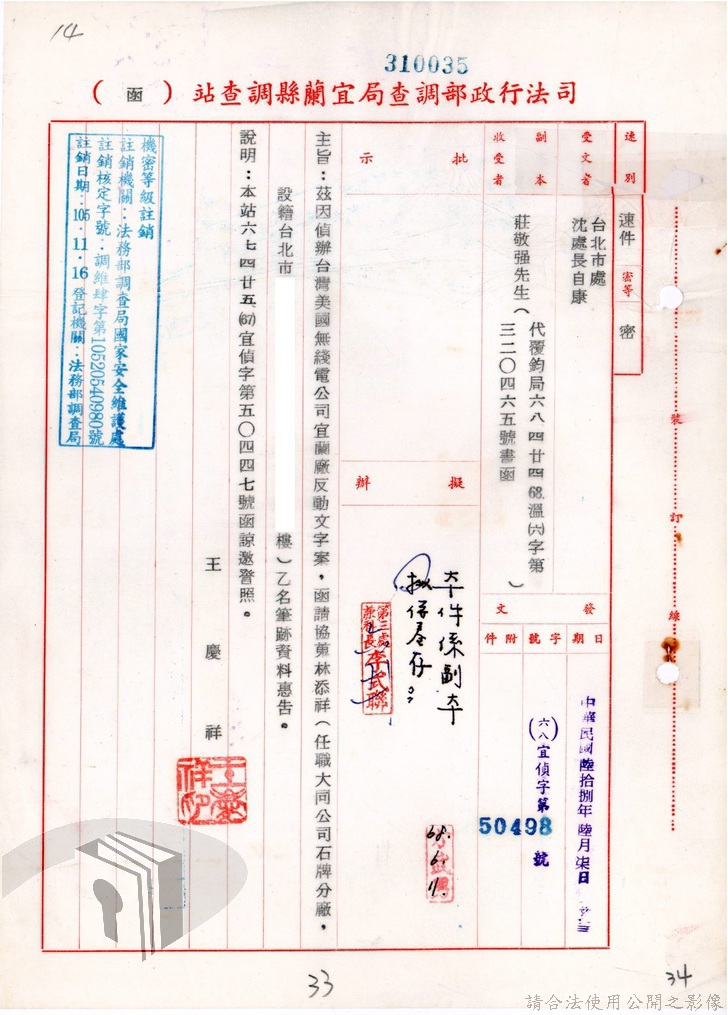 14
310035
司法行政部調查局宜蘭縣調查站（函）
速別
速件
密等
密
受文者
台北市處
沈處長自康
副本
收受者
莊敬强先生（代覆鈞局六八四廿四68.溫㈥字第三二〇四六五號書函）
批示
擬辦
本件係副本
擬存卷存。
第三處
兼處長李武聯
68.6.11.
發文
日期
中華民國陸拾捌年陸月柒日
字號
（六八）宜偵字第50498號
附件
主旨：茲因偵辦台灣美國無綫電公司宜蘭廠反動文字案，函請協蒐林添祥（任職大同公司石牌分廠，
設籍台北市
樓）乙名筆跡資料惠告。
說明：本站六七四廿五㊿宜偵字第五〇四四七號函諒邀詧照。
王慶祥
機密等級註銷
註銷機關：法務部調查局國家安全維護處
註銷核定字號：調維肆字第10520540980號
註銷日期：105．11．16 登記機關：法務部調查局
裝
訂
線
33
34
請合法使用公開之影像